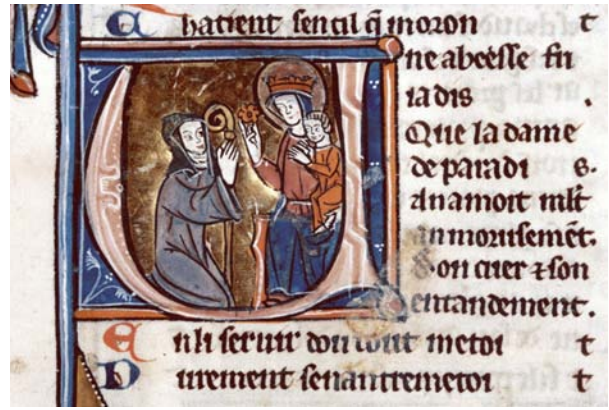 C hatient sen cil q̃ moron t
U ne abeesse fu
iadis .
Que la dame
de paradi s.
An amoit ml't
anmorusemẽt.
Son cuer ⁊ son
entandement.
E n li seruir dou tout metoi t
D urement senantremetoi t